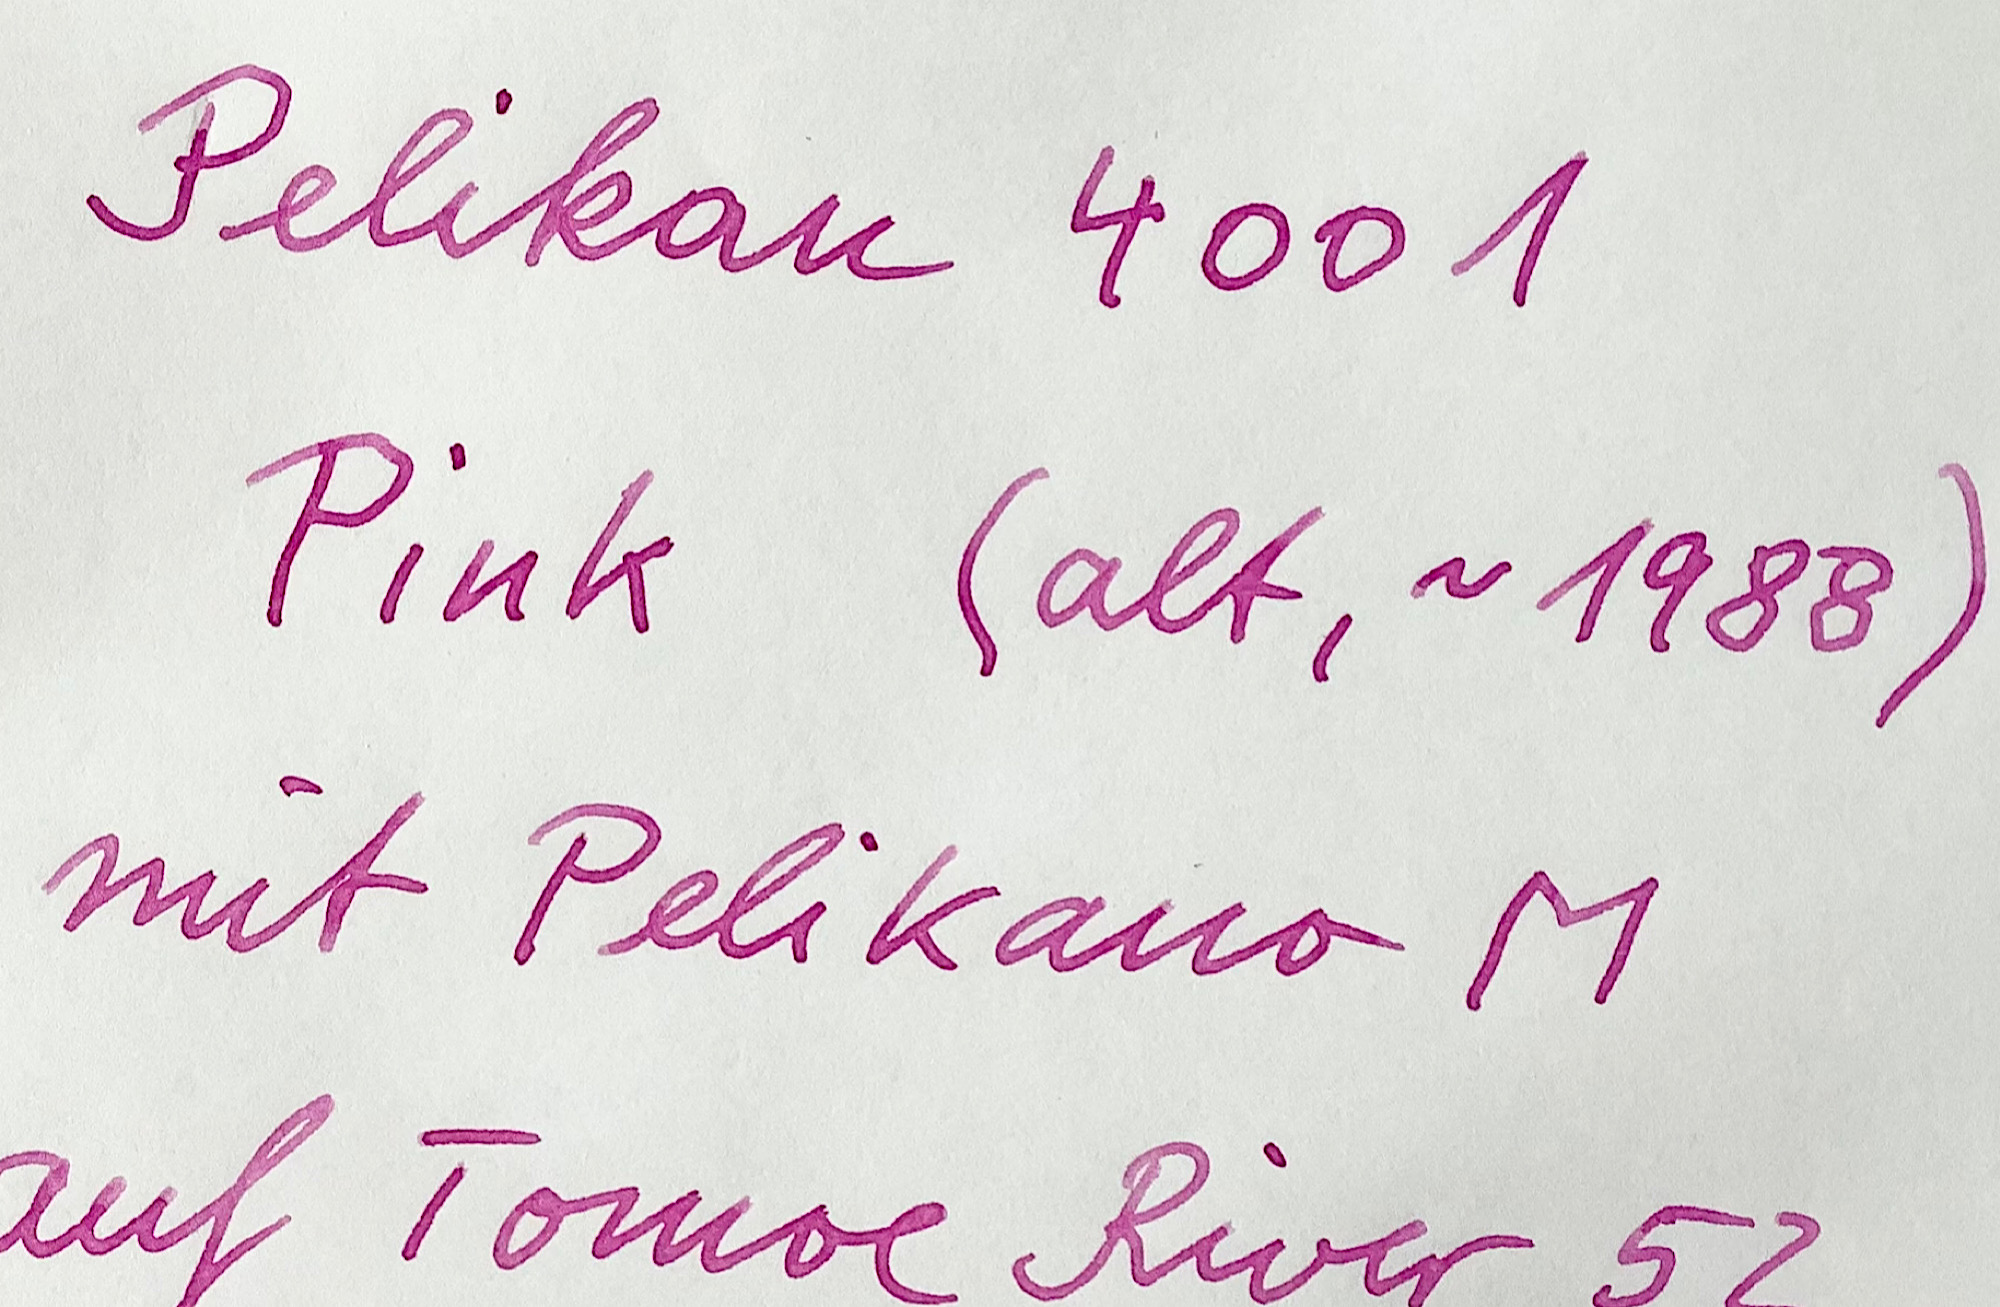 Pelikan 4001
Pink (alt, ~1988)
mit Pelikano M
auf Tomoe River 52